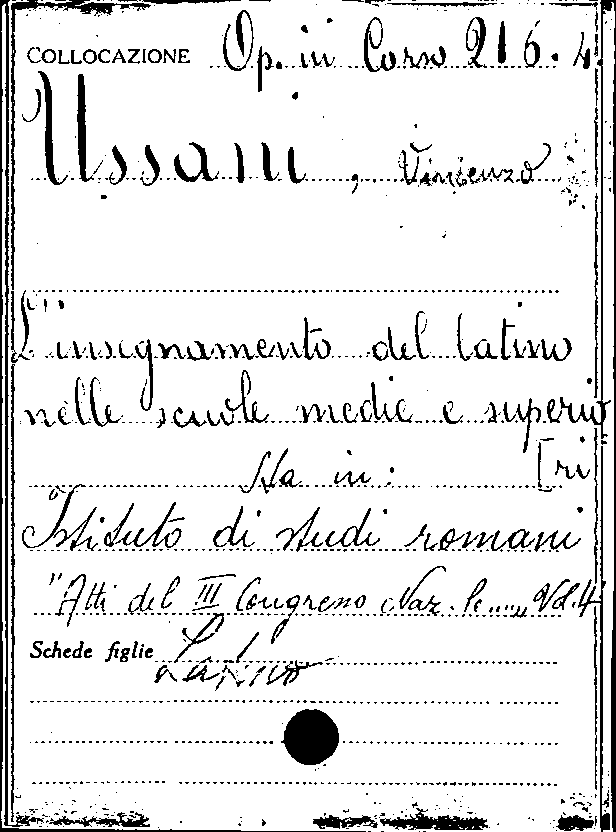 COLLOCAZIONE Op. in Corso 216. 4.
Ussani, Vincenzo
L'insegnamento del latino
nelle scuole medie e superio
[ri
Sta in:
Istituto di studi romani
"Atti del III Congresso Naz.le....., Vol. 4
Schede figlie Latino